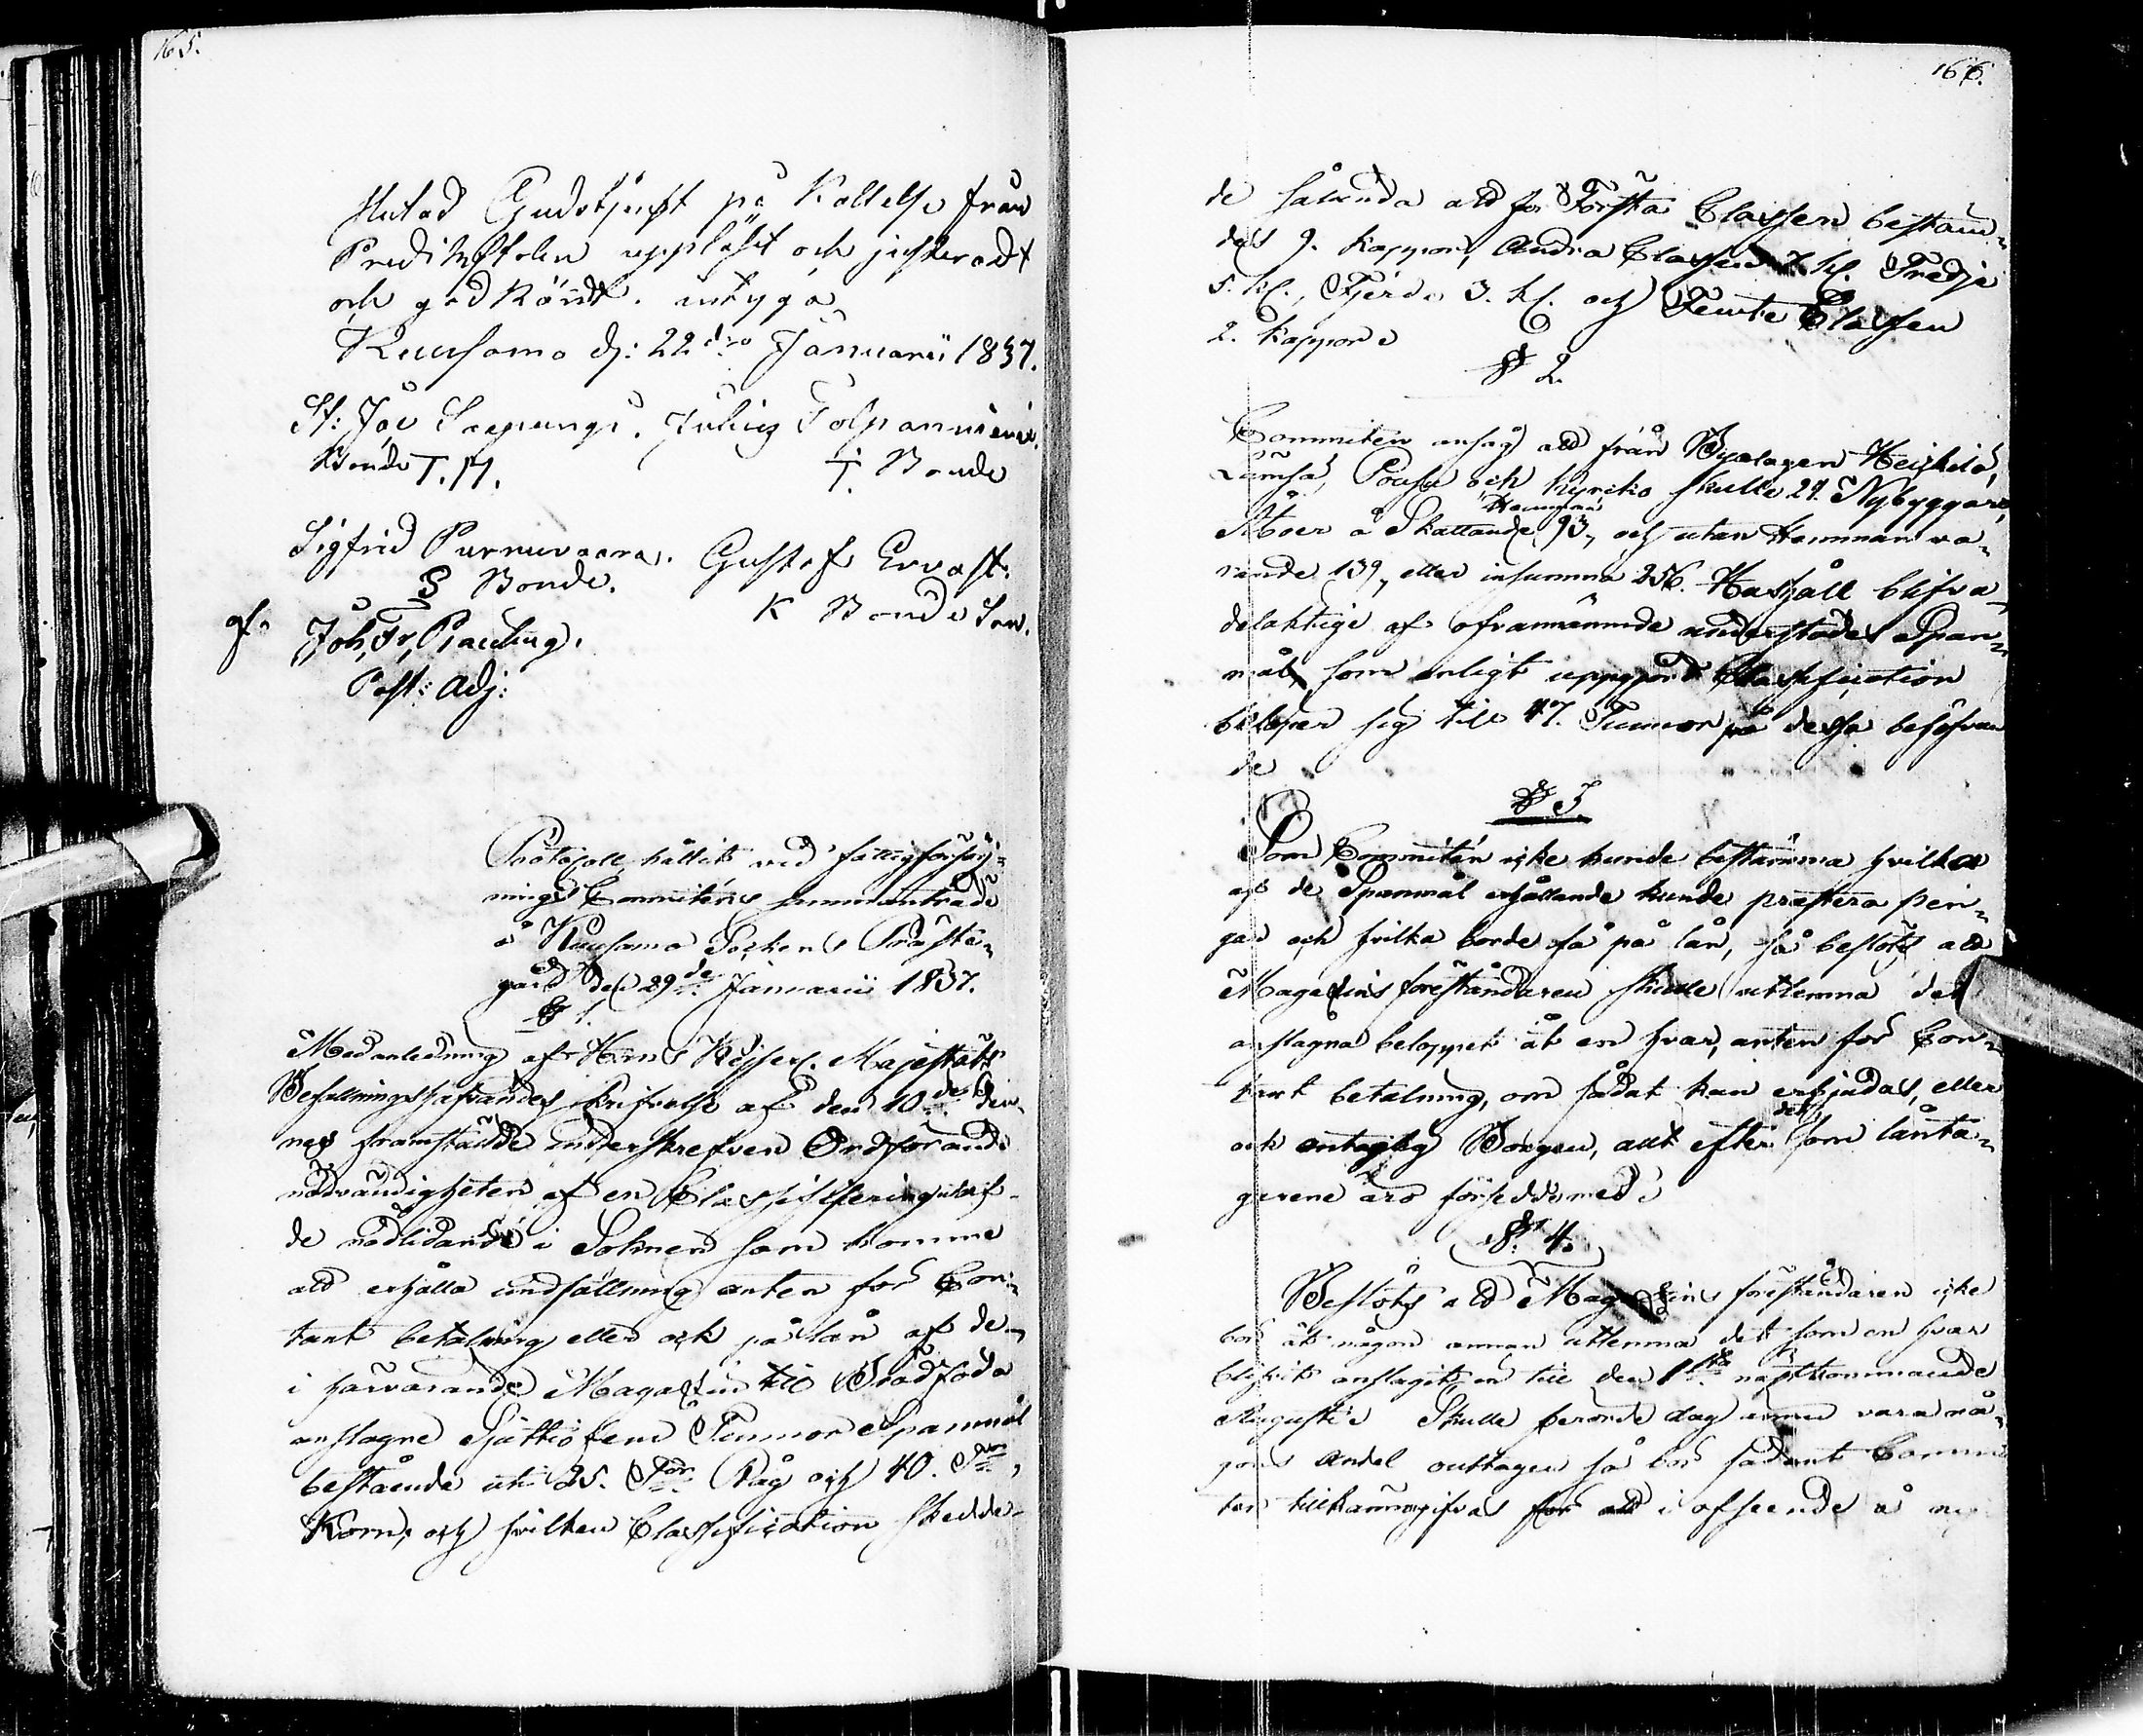 165.
slutad Gudstjenst på Kallelse från
Predikstolen uppläst och justeradt
och godkändt. intyga
Kuusamo d: 22dra Januarii 1837.
Bonde T. M.
T. Bonde
Sigfrid Purnuvaara. Gustaf Ervast.
S Bonde.
K Bonde Son.
Joh, Fr,
Past: Adj:
Protocoll hållit vid fattigförsörj-
nings Committéns sammanträde
å Kuusamo Sockens Präste-
gård den 29de Januarii 1837.
§ 1.
Med anledning af Hans Kejserl. Majestäts
Befallningshafvandes skrifvelse af den 10de den-
nes framstälde underskrefven Ordförande
nödvändigheten af en Classificering utaf
de nödlidande i Soknen som komme
att erhålla undsättning anten för Con-
tant betalning eller ock på lån af de
i härvarande Magasin till Brödföda
anslagne Sjuttiofem Tunnor Spanmål
bestående uti 35. Tnr Råg och 40. Tnr
Korn; och hvilken Classification skedde
166.
de sålunda att för Första Classen bestäm-
des 9. kappor, Andra Classen 7 kp. Tredje
5. kp., Fjerde 3. kp. och Femte Classen
2. kappor
§ 2.
Committén ansåg att från Byalagen Heikkilä,
Lämsä, Poussu och Kyrcko skulle 24. Nybyggare,
Åboer å Skattande Hemman 93, och utan Hemman va-
rande 139, eller insumma 256. Hushåll blifva
delaktige af ofvannämnde understöds Span-
mål, som enligt uppgjord Classification
belöper sig till 47. Tunnor på dessa behöfvan
de
§ 3.
Som Committén icke kunde bestämma hvilka
af de Spanmål erhållande kunde præstera pen-
gar och hvilka borde få på lån, så beslöts att
Magasins föreståndaren skulle utlemna det
anslagna beloppet åt en hvar, anten för Con-
tant betalning, om sådat kan erbjudas, eller
ock antaglig Borgen, allt efter det som lånta-
garene äro försedde med
§ 4.
Beslöts att Magasins föreståndaren icke
bör åt någon annan utlemna det som en hvar
blifvit anslagit, än till den 1sta nästkommande
Augusti. Skulle berörde dag ännu vara nå-
gons andel outtagen så bör sådant Commi
ten tillkännagifvas för att i afseende å ny